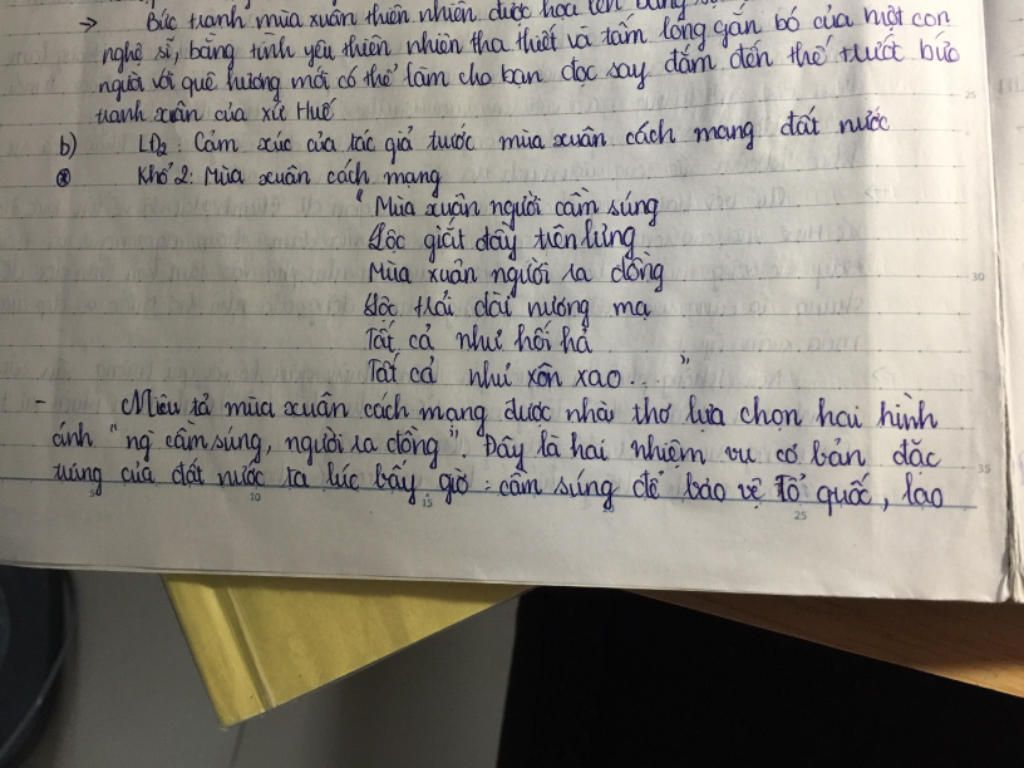 → Bức tranh mùa xuân thiên nhiên được họa lên bằng
nghệ sĩ, bằng tình yêu thiên nhiên tha thiết và tấm lòng gắn bó của một con
người với quê hương mới có thể làm cho bạn đọc say đắm đến thế trước bức
tranh xuân của xứ Huế
b) LĐ2: Cảm xúc của tác giả trước mùa xuân cách mạng đất nước
* Khổ 2: Mùa xuân cách mạng
"Mùa xuân người cầm súng
Lộc giắt đầy trên lưng
Mùa xuân người ra đồng
Lộc trải dài nương mạ
Tất cả như hối hả
Tất cả như xôn xao..."
- Miêu tả mùa xuân cách mạng được nhà thơ lựa chọn hai hình
ảnh "ng' cầm súng, người ra đồng". Đây là hai nhiệm vụ cơ bản đặc
trưng của đất nước ta lúc bấy giờ: cầm súng để bảo vệ tổ quốc, lao